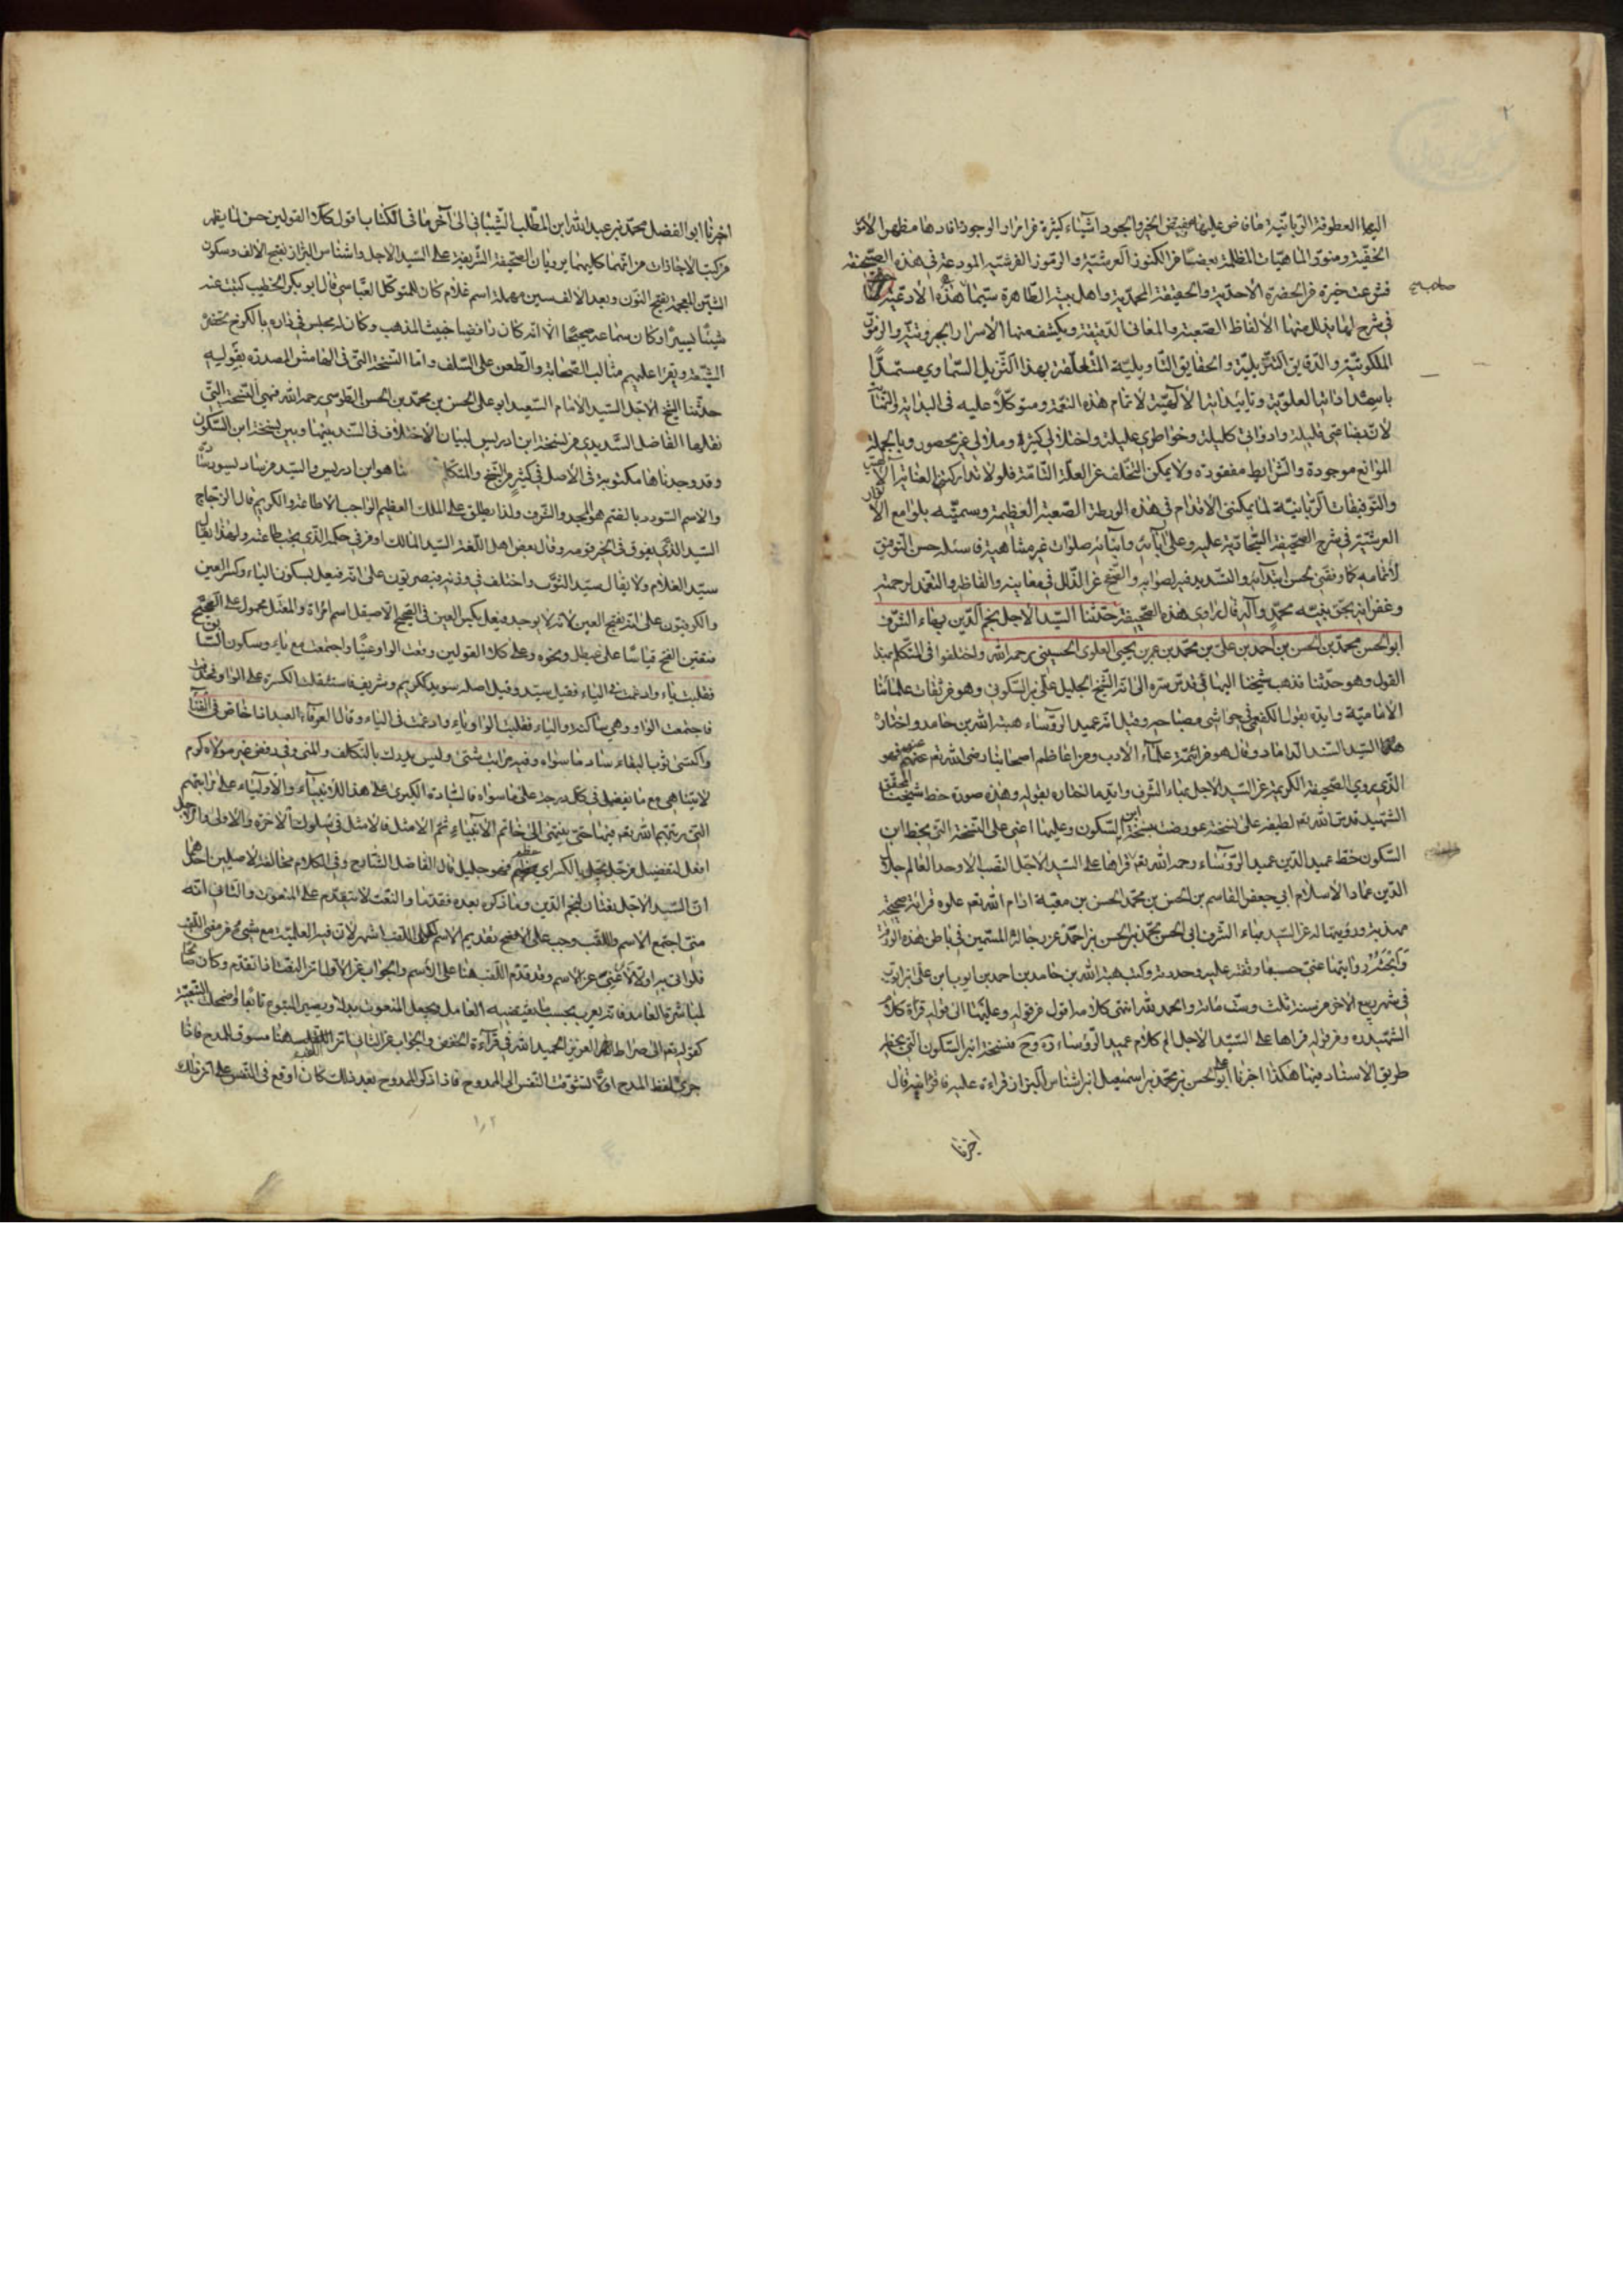 اليها العطوفة الربانية ما فاض عليها مفيض الخير والجود اشياء كثيرة من امداد الوجود افادها مظهر الامور
الخفية ومنور الماهيات المظلمة بعضها من الكنوز العرشية والرموز الفرشية المودعة في هذه الصحيفة
فشرعت خيرة من الحضرة الاحدية والحقيقة المحمدية واهل بيته الطاهرة سيما هذه الادعية
صاحب
في شرح لها يذلل منها الالفاظ الصعبة والمعاني الدقيقة ويكشف منها الاسرار الجبروتية والرموز
الملكوتية والدقايق التنزيلية والحقايق التاويلية المتعلقة بهذا التنزيل السماوي مستمدا
باستمداداتها العلوية وتاييداتها الالهية لاتمام هذه النعمة ومتوكلا عليه في البداية والنهاية
لان بضاعتي قليلة وادواتي كليلة وخواطري عليلة واختلالي كثيرة وملالي غير محصور وبالجملة
الموانع موجودة والشرايط مفقودة ولا يمكن التخلف عن العلة التامة فلولا تداركتني العناية الالهية
والتوفيقات الربانية لما يمكنني الاقدام في هذه الورطة الصعبة العظيمة وسميته بلوامع الانوار
العرشية في شرح الصحيفة السجادية عليه وعلى آبائه وابنائه صلوات غير متناهية فاسئله حسن التوفيق
لاتمامه كما وفقني بحسن ابتدائه والتسديد فيه لصوابه والصفح عن الزلل في معانيه والفاظه والتغمد لرحمته
وغفرانه بحق نبيه محمد وآله قال راوي هذه الصحيفة حدثنا السيد الاجل نجم الدين بهاء الشرف
ابو الحسن محمد بن الحسن بن احمد بن علي بن محمد بن عمر بن يحيى العلوي الحسيني رحمه الله واختلفوا في المتكلم بهذا
القول وهو حدثنا فذهب شيخنا البهائي قدس سره الى انه الشيخ الجليل علي بن السكون وهو من ثقات علمائنا
الامامية وايده بقول الكفعمي في حواشي مصباحه وقيل انه عميد الرؤساء هبة الله بن حامد واختاره
السيد السند الداماد وقال هو من ائمة علماء الادب ومن اعاظم اصحابنا رضي الله تعم عنهم فهو
الذي يروي الصحيفة الكريمة عن السيد الاجل بهاء الشرف وايد ما اختاره بقوله وهذه صورة خط شيخنا المحقق
الشهيد قدس الله تعم لطيفه على نسخة عورضت بنسخة ابن السكون وعليها اعني على النسخة التي بخط ابن
السكون خط عميد الدين عميد الرؤساء رحمه الله تعم قراها على السيد الاجل النقيب الاوحد العالم جلال
الدين عماد الاسلام ابي جعفر القاسم بن الحسن بن محمد بن الحسن بن معية ادام الله تعم علوه قراءة صحيحة
مهذبة ورويتها له عن السيد بهاء الشرف ابي الحسن محمد بن الحسن بن احمد عن رجاله المسمين في باطن هذه الورقة
وابحته روايتها عني حسبما وقفته عليه وحددته وكتب هبة الله بن حامد بن احمد بن ايوب بن علي بن ايوب
في شهر ربيع الاخر من سنة ثلث وست مائة والحمد لله انتهى كلامه اقول من قوله وعليها الى قوله قراءة كلام
الشهيد ره ومن قوله قراها على السيد الاجل الخ كلام عميد الرؤساء ره وح فنسخة ابن السكون التي بخطه
طريق الاسناد فيها هكذا اخبرنا ابو علي الحسن بن محمد بن اسمعيل ابن اشناس البزاز قراءة عليه فاقر به قال
اخبرنا
اخبرنا ابو الفضل محمد بن عبد الله ابن المطلب الشيباني الى آخر ما في الكتاب اقول كلا القولين حسن لما يظهر
من كتب الاجازات من انهما كليهما يرويان الصحيفة الشريفة على السيد الاجل واشناس البزاز بفتح الالف وسكون
الشين المعجمة بفتح النون وبعد الالف سين مهملة اسم غلام كان للمتوكل العباسي قال ابو بكر الخطيب كتبت عنه
شيئا يسيرا وكان سماعه صحيحا الا انه كان رافضيا خبيث المذهب وكان له مجلس في داره بالكرخ يحضره
الشيعة ويقرا عليهم مثالب الصحابة والطعن على السلف واما النسخة التي في الهامش المصدرة بقوله
حدثنا الشيخ الاجل السيد الامام السعيد ابو علي الحسن بن محمد بن الحسن الطوسي رحمه الله فهي النسخة التي
نقلها الفاضل السديدي من نسخة ابن ادريس لبيان الاختلاف في السند بينها وبين نسخة ابن السكون
وقد وجدناها مكتوبة في الاصل في كثير من النسخ والمتكلم هنا هو ابن ادريس والسيد من ساد يسود سيادة
والاسم السودد بالضم هو المجد والشرف ولذا يطلق على الملك العظيم الواجب الاطاعة والكريم قال الزجاج
السيد الذي يفوق في الخير قومه وقال بعض اهل اللغة السيد المالك او من في حكمه الذي يجب طاعته ولهذا يقال
سيد الغلام ولا يقال سيد الثوب واختلف في وزنه فبصريون على انه فيعل بسكون الياء وكسر العين
والكوفيون على انه بفتح العين لانه لا يوجد فيعل بكسر العين في الصحيح الا صيقل اسم امراة والمعتل محمول على الصحيح
فتعين الفتح قياسا على عيطل ونحوه وعلى كلا القولين وقعت الواو عينا واجتمعت مع ياء وسكون السابق
فقلبت ياء وادغمت في الياء فقيل سيد وقيل اصله سويد ككريم وشريف فاستثقلت الكسرة على الواو فحذفت
فاجتمعت الواو وهي ساكنة والياء فقلبت الواو ياء وادغمت في الياء وقال العرفاء العبد اذا خاض في الفناء
واكتسى ثوب البقاء ساد ما سواه وفيه مراتب شتى وليس يدرك بالتكلف والمنى وفي رفض غير مولاه كرم
لا يتناهى مع ما يفضل في كل درجة على ما سواه فالسادة الكبرى على هذا للانبياء والاولياء على مراتبهم
التي رتبهم الله تعم فيها حتى ينتهي الى خاتم الانبياء ثم الامثل فالامثل في سلوك الاخرة والاولى والاجل
افعل لتفضيل من جل يجل بالكسر اي عظم فهو جليل قال الفاضل الشارح وفي الكلام مخالفة لاصلين احدهما
ان السيد الاجل نعتان لنجم الدين وما ذكره بعده فقدما والنعت لا يتقدم على المنعوت والثاني انه
متى اجتمع الاسم واللقب وجب على الافصح تقديم الاسم لكون اللقب اشهر لان فيه العلمية مع شيء من معنى النعت
فلو اتي به اولا لاغني عن الاسم وقد قدم اللقب هنا على الاسم والجواب عن الاول ان النعت اذا تقدم وكان صالحا
لمباشرة العامل فانه يعرب بحسب ما يقتضيه العامل ويجعل المنعوت بدلا ويصير المتبوع تابعا واضمحلت التبعية
كقوله تعم الى صراط العزيز الحميد الله في قراءة الخفض والجواب عن الثاني ان اللقب هنا مسوق للمدح فاذا
جرى لفظ المدح اولا تشوقت النفس الى الممدوح فاذا ذكر الممدوح بعد ذلك كان اوقع في النفس على ان ذلك